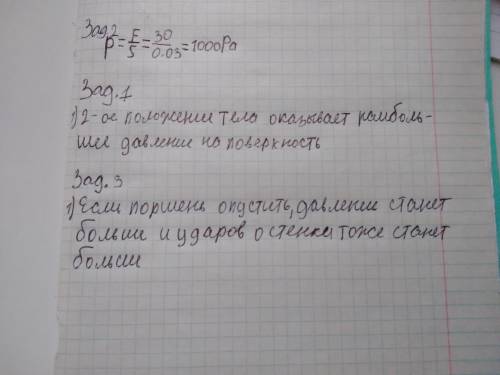 Зад.2
P=F/S=30/0.03=1000Pa
Зад.1
1) 2-ое положении тела оказывает намболь-
шее давление на поверхность
Зад.3
1) Если поршень опустить, давлении станет
больши и ударов о стенки тоже станет
больши